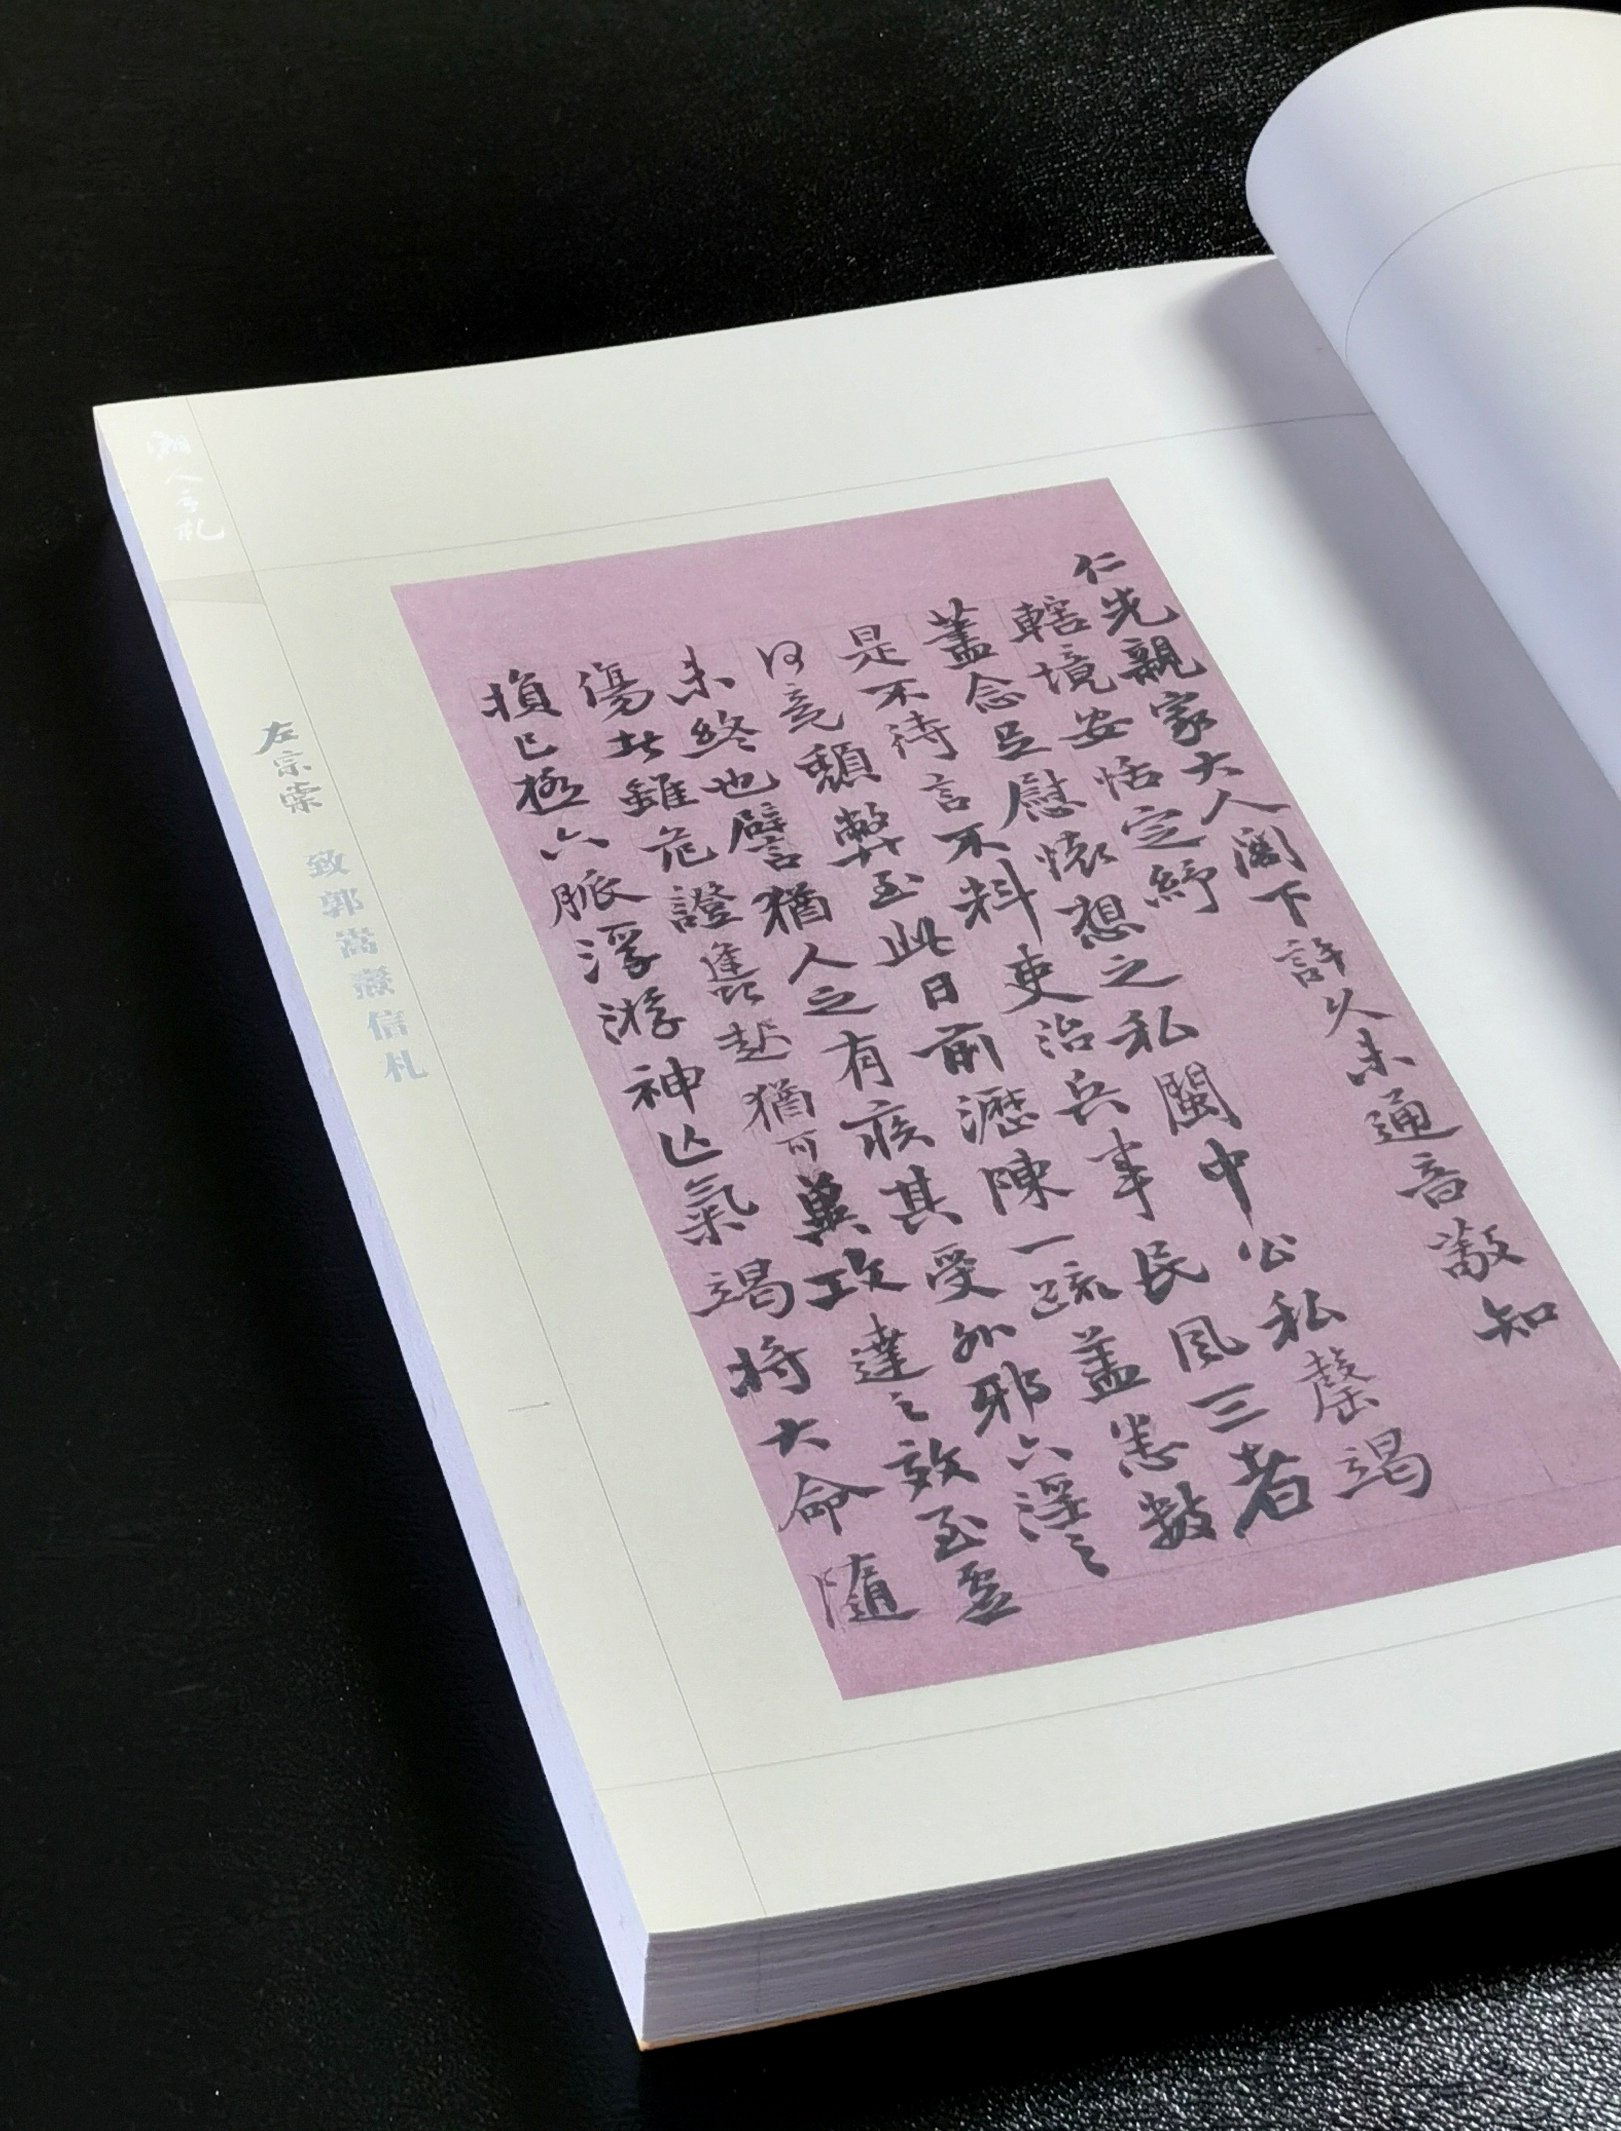 仁先親家大人閣下許久未通音敬知
轄境安恬定紓
藎念足慰懷想之私閩中公私罄竭
是不待言不料吏治兵事民風三者
何竟頹弊至此日前瀝陳一疏蓋數
未終也譬猶人之有疾其受外邪六淫之
傷此雖危證蠭起猶可冀攻達之效至虛
損已極六脈浮游神亡氣竭將大命隨
湘人手札
左宗棠 致郭嵩燾信札
一